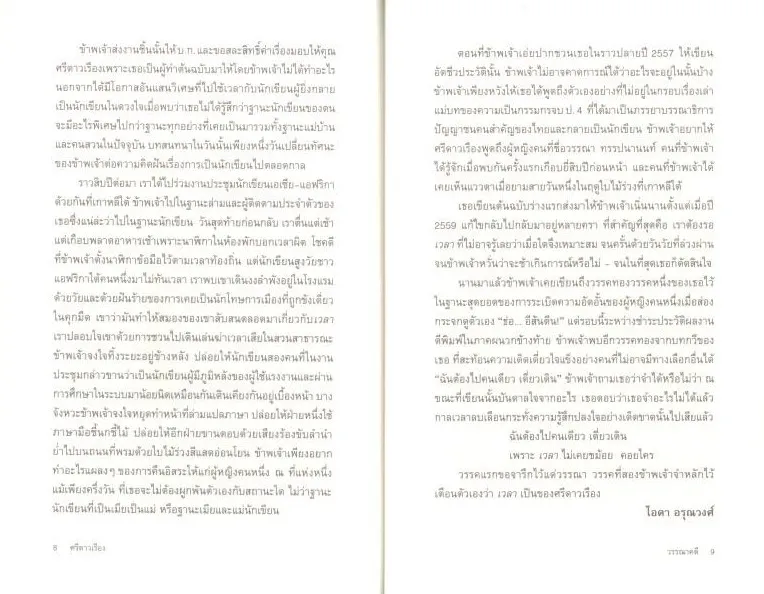 ข้าพเจ้าส่งงานชิ้นนั้นให้บ.ก. และขอสละสิทธิ์ค่าเรื่องมอบให้คุณ
ศรีดาวเรืองเพราะเธอเป็นผู้ทำต้นฉบับมาให้โดยข้าพเจ้าไม่ได้ทำอะไร
นอกจากได้มีโอกาสอันแสนวิเศษที่ไปใช้เวลากับนักเขียนผู้ยิ่งกลาย
เป็นนักเขียนในดวงใจเมื่อพบว่าเธอไม่ได้รู้สึกว่าฐานะนักเขียนของตน
จะมีอะไรพิเศษไปกว่าฐานะทุกอย่างที่เคยเป็นมารวมทั้งฐานะแม่บ้าน
และคนสวนในปัจจุบัน บทสนทนาในวันนั้นเพียงหนึ่งวันเปลี่ยนทัศนะ
ของข้าพเจ้าต่อความคิดฝันเรื่องการเป็นนักเขียนไปตลอดกาล
ราวสิบปีต่อมา เราได้ไปร่วมงานประชุมนักเขียนเอเชีย-แอฟริกา
ด้วยกันที่เกาหลีใต้ ข้าพเจ้าไปในฐานะล่ามและผู้ติดตามประจำตัวของ
เธอซึ่งแน่ล่ะว่าไปในฐานะนักเขียน วันสุดท้ายก่อนกลับ เราตื่นแต่เช้า
แต่เกือบพลาดอาหารเช้าเพราะนาฬิกาในห้องพักบอกเวลาผิด โชคดี
ที่ข้าพเจ้าตั้งนาฬิกาข้อมือไว้ตามเวลาท้องถิ่น แต่นักเขียนสูงวัยชาว
แอฟริกาใต้คนหนึ่งมาไม่ทันเวลา เราพบเขาเดินงงลำพังอยู่ในโรงแรม
ด้วยวัยและด้วยฝันร้ายของการเคยเป็นนักโทษการเมืองที่ถูกขังเดี่ยว
ในคุกมืด เขาว่ามันทำให้สมองของเขาสับสนตลอดมาเกี่ยวกับเวลา
เราปลอบใจเขาด้วยการชวนไปเดินเล่นฆ่าเวลาเสียในสวนสาธารณะ
ข้าพเจ้าจงใจทิ้งระยะอยู่ข้างหลัง ปล่อยให้นักเขียนสองคนที่ในงาน
ประชุมกล่าวขานว่าเป็นนักเขียนผู้มีภูมิหลังของผู้ใช้แรงงานและผ่าน
การศึกษาในระบบมาน้อยนิดเหมือนกันเดินเคียงกันอยู่เบื้องหน้า บาง
จังหวะข้าพเจ้าจงใจหยุดทำหน้าที่ล่ามแปลภาษา ปล่อยให้ฝ่ายหนึ่งใช้
ภาษามือชี้นกชี้ไม้ ปล่อยให้อีกฝ่ายขานตอบด้วยเสียงร้องขับลำนำ
ย่ำไปบนถนนที่พรมด้วยใบไม้ร่วงสีแสดอ่อนโยน ข้าพเจ้าเพียงอยาก
ทำอะไรแผลงๆ ของการคืนอิสระให้แก่ผู้หญิงคนหนึ่ง ณ ที่แห่งหนึ่ง
แม้เพียงครึ่งวัน ที่เธอจะไม่ต้องผูกพันตัวเองกับสถานะใด ไม่ว่าฐานะ
นักเขียนที่เป็นเมียเป็นแม่ หรือฐานะเมียและแม่นักเขียน
8 ศรีดาวเรือง
ตอนที่ข้าพเจ้าเอ่ยปากชวนเธอในราวปลายปี 2557 ให้เขียน
อัตชีวประวัตินั้น ข้าพเจ้าไม่อาจคาดการณ์ได้ว่าอะไรจะอยู่ในนั้นบ้าง
ข้าพเจ้าเพียงหวังให้เธอได้พูดถึงตัวเองอย่างที่ไม่อยู่ในกรอบเรื่องเล่า
แม่บทของความเป็นกรรมกรจบ ป. 4 ที่ได้มาเป็นภรรยาบรรณาธิการ
ปัญญาชนคนสำคัญของไทยและกลายเป็นนักเขียน ข้าพเจ้าอยากให้
ศรีดาวเรืองพูดถึงผู้หญิงคนที่ชื่อวรรณา ทรรปนานนท์ คนที่ข้าพเจ้า
ได้รู้จักเมื่อพบกันครั้งแรกเกือบยี่สิบปีก่อนหน้า และคนที่ข้าพเจ้าได้
เคยเห็นแววตาเมื่อยามสายวันหนึ่งในฤดูใบไม้ร่วงที่เกาหลีใต้
เธอเขียนต้นฉบับร่างแรกส่งมาให้ข้าพเจ้าเนิ่นนานตั้งแต่เมื่อปี
2559 แก้ไขกลับไปกลับมาอยู่หลายครา ที่สำคัญที่สุดคือ เราต้องรอ
เวลา ที่ไม่อาจรู้เลยว่าเมื่อใดจึงเหมาะสม จนครั้นด้วยวันวัยที่ล่วงผ่าน
จนข้าพเจ้าหวั่นว่าจะช้าเกินการณ์หรือไม่ – จนในที่สุดเธอก็ตัดสินใจ
นานมาแล้วข้าพเจ้าเคยเขียนถึงวรรคทองวรรคหนึ่งของเธอไว้
ในฐานะสุดยอดของการระเบิดความอัดอั้นของผู้หญิงคนหนึ่งเมื่อส่อง
กระจกดูตัวเอง “ช่อ... อีสันดีน!” แต่รอบนี้ระหว่างชำระประวัติผลงาน
ตีพิมพ์ในภาคผนวกข้างท้าย ข้าพเจ้าพบอีกวรรคทองจากบทกวีของ
เธอ ที่สะท้อนความเด็ดเดี่ยวใจแข็งอย่างคนที่ไม่อาจมีทางเลือกอื่นได้
“ฉันต้องไปคนเดียว เดี่ยวเดิน” ข้าพเจ้าถามเธอว่าจำได้หรือไม่ว่า ณ
ขณะที่เขียนนั้นบันดาลใจจากอะไร เธอตอบว่าเธอจำอะไรไม่ได้แล้ว
กาลเวลาลบเลือนกระทั่งความรู้สึกปลงใจอย่างเด็ดขาดนั้นไปเสียแล้ว
ฉันต้องไปคนเดียว เดี่ยวเดิน
เพราะ เวลา ไม่เคยขม้อย คอยใคร
วรรคแรกขอจารึกไว้แด่วรรณา วรรคที่สองข้าพเจ้าจำหลักไว้
เตือนตัวเองว่า เวลา เป็นของศรีดาวเรือง
ไอดา อรุณวงศ์
วรรณาคดี 9